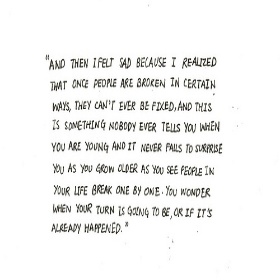 "AND THEN I FELT SAD BECAUSE I REALIZED
THAT ONCE PEOPLE ARE BROKEN IN CERTAIN
WAYS, THEY CAN'T EVER BE FIXED, AND THIS
IS SOMETHING NOBODY EVER TELLS YOU WHEN
YOU ARE YOUNG AND IT NEVER FAILS TO SURPRISE
YOU AS YOU GROW OLDER AS YOU SEE PEOPLE IN
YOUR LIFE BREAK ONE BY ONE. YOU WONDER
WHEN YOUR TURN IS GOING TO BE, OR IF IT'S
ALREADY HAPPENED."